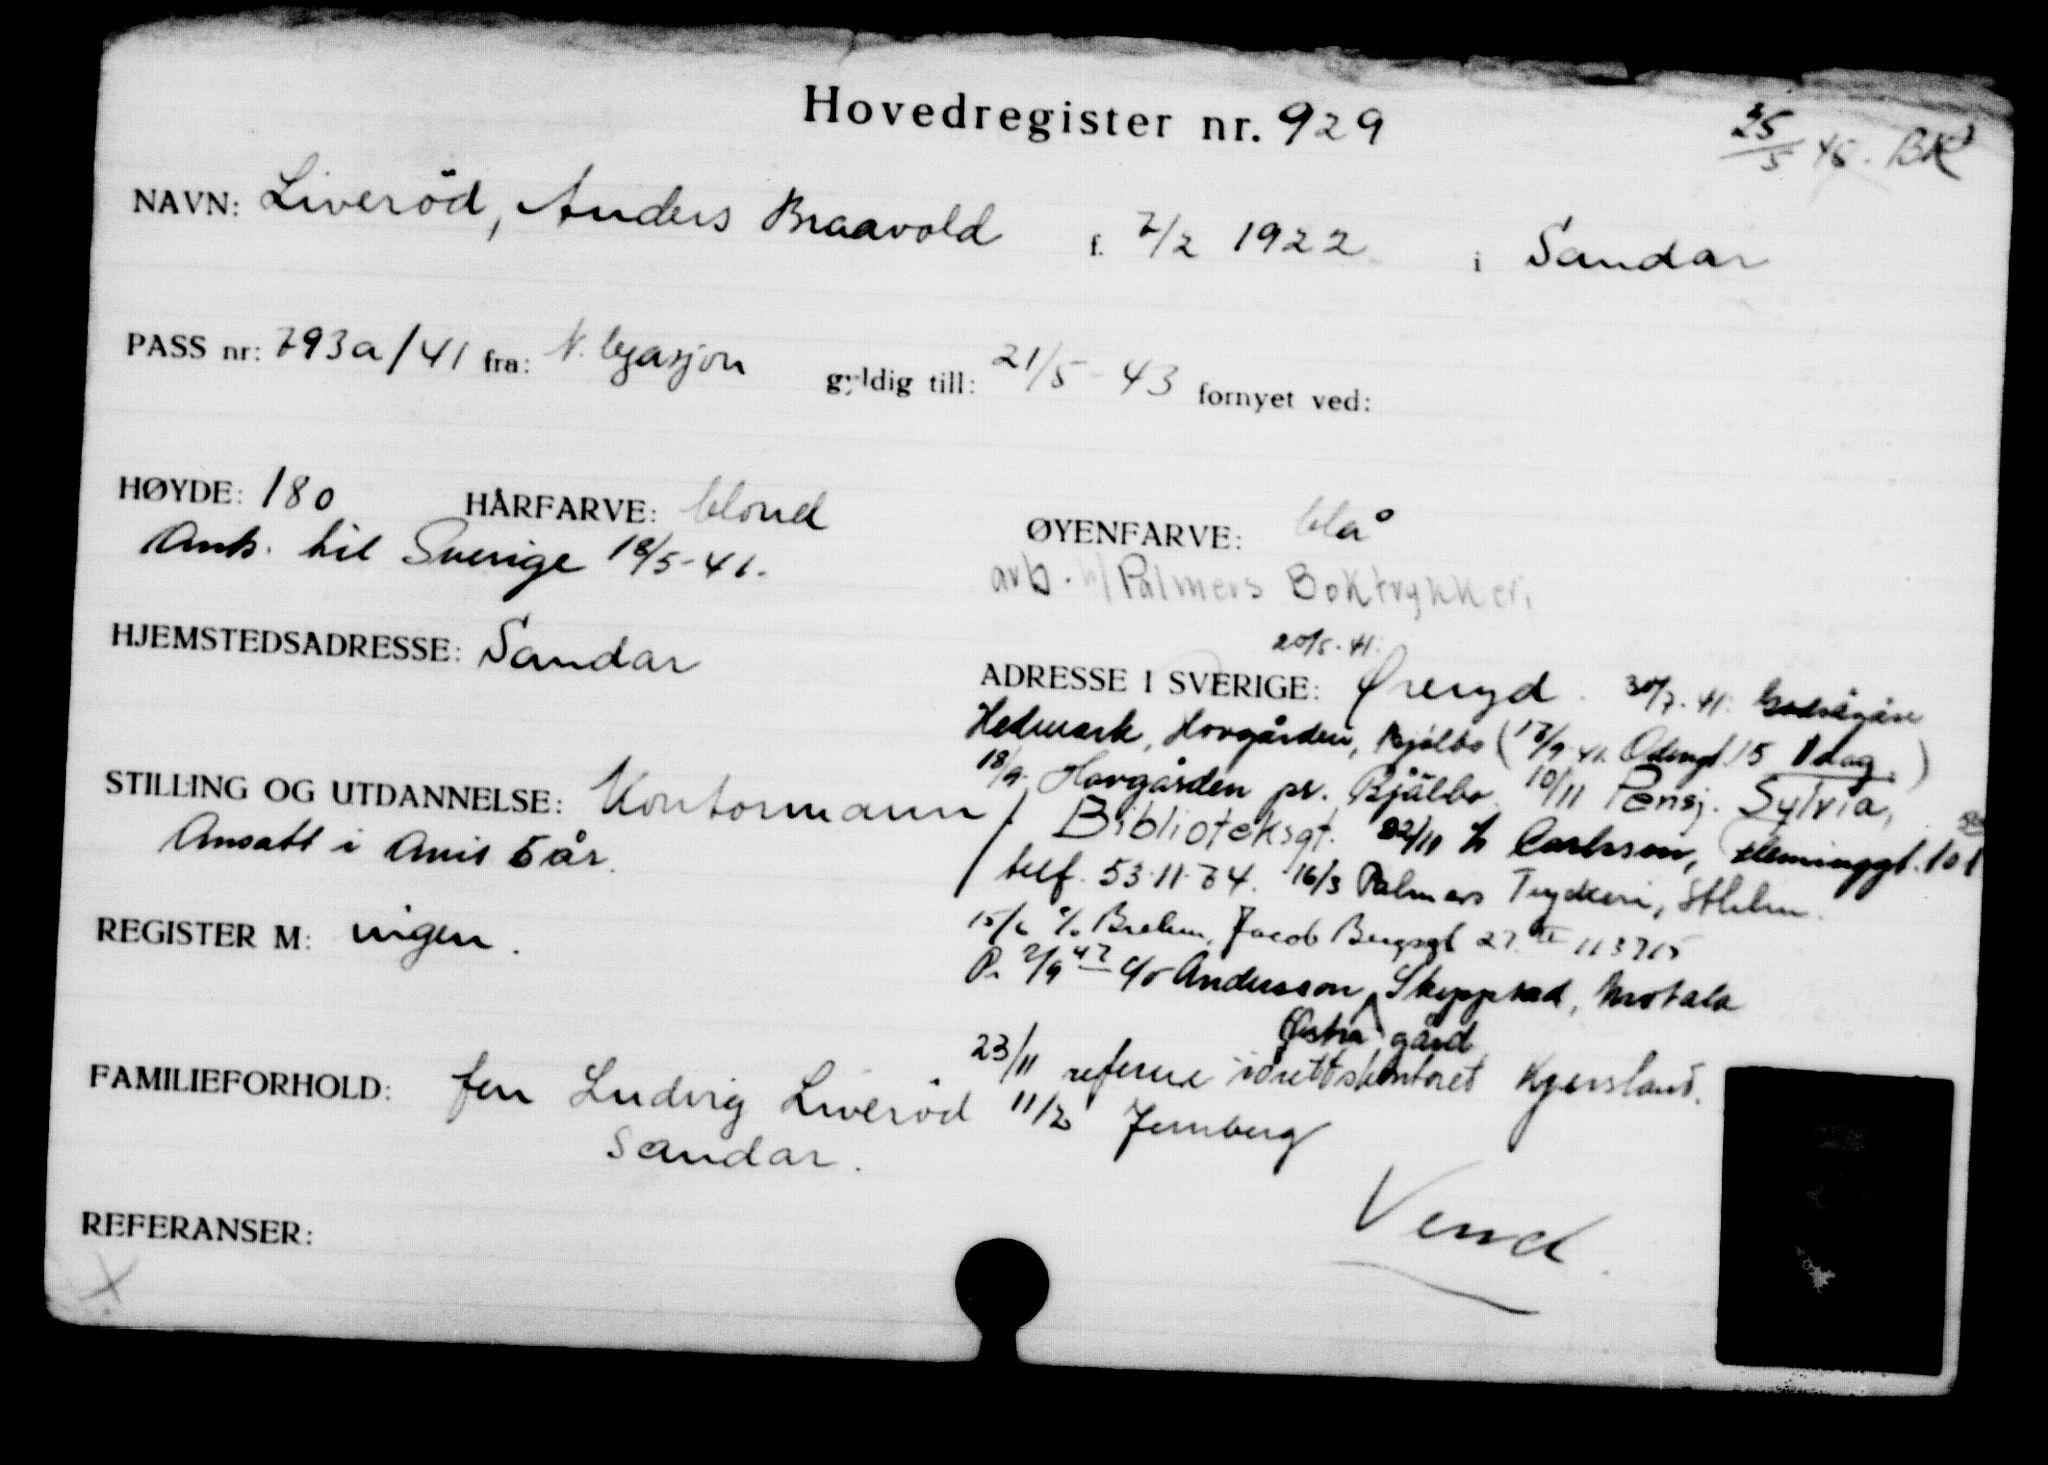 Hovedregister nr. 929
25/5 45. BK
NAVN: Liverød, Anders Braavold f. 7/2 1922 i Sandar
PASS nr: 793a/41 fra: N. legasjon gyldig till: 21/5-43 fornyet ved:
HØYDE: 180 HÅRFARVE: blond ØYENFARVE: blå
Ank. til Sverige 18/5-41.
arb. v/ Palmers Boktrykkeri
20/5-41.
HJEMSTEDSADRESSE: Sandar
ADRESSE I SVERIGE: Øreryd. 30/7.41: Godsägare
Hedmark, Hovgården, Bjälbo (17/9-41. Odengt. 15 1 dag.)
18/9. Hovgården pr. Bjälbo. 10/11 Pensj. Sylvia,
STILLING OG UTDANNELSE: Kontormann
Ansatt i Avis 5 år.
Biblioteksgt. 22/11 Carlsson, Fleminggt. 101
telf. 53.11.74. 16/3 Palmers Tryckeri, Sthlm.
15/6 c/o Brehm, Jacob Bergsgt 27 III 113715
REGISTER M: ingen.
P. 2/9 42 c/o Andersson, Skeppstad, Motala
Østra gård
23/11 referer idrettskontoret Kjersland.
FAMILIEFORHOLD: far Ludvig Liverød
Sandar.
11/2 Jernberg
Vend.
REFERANSER:
X